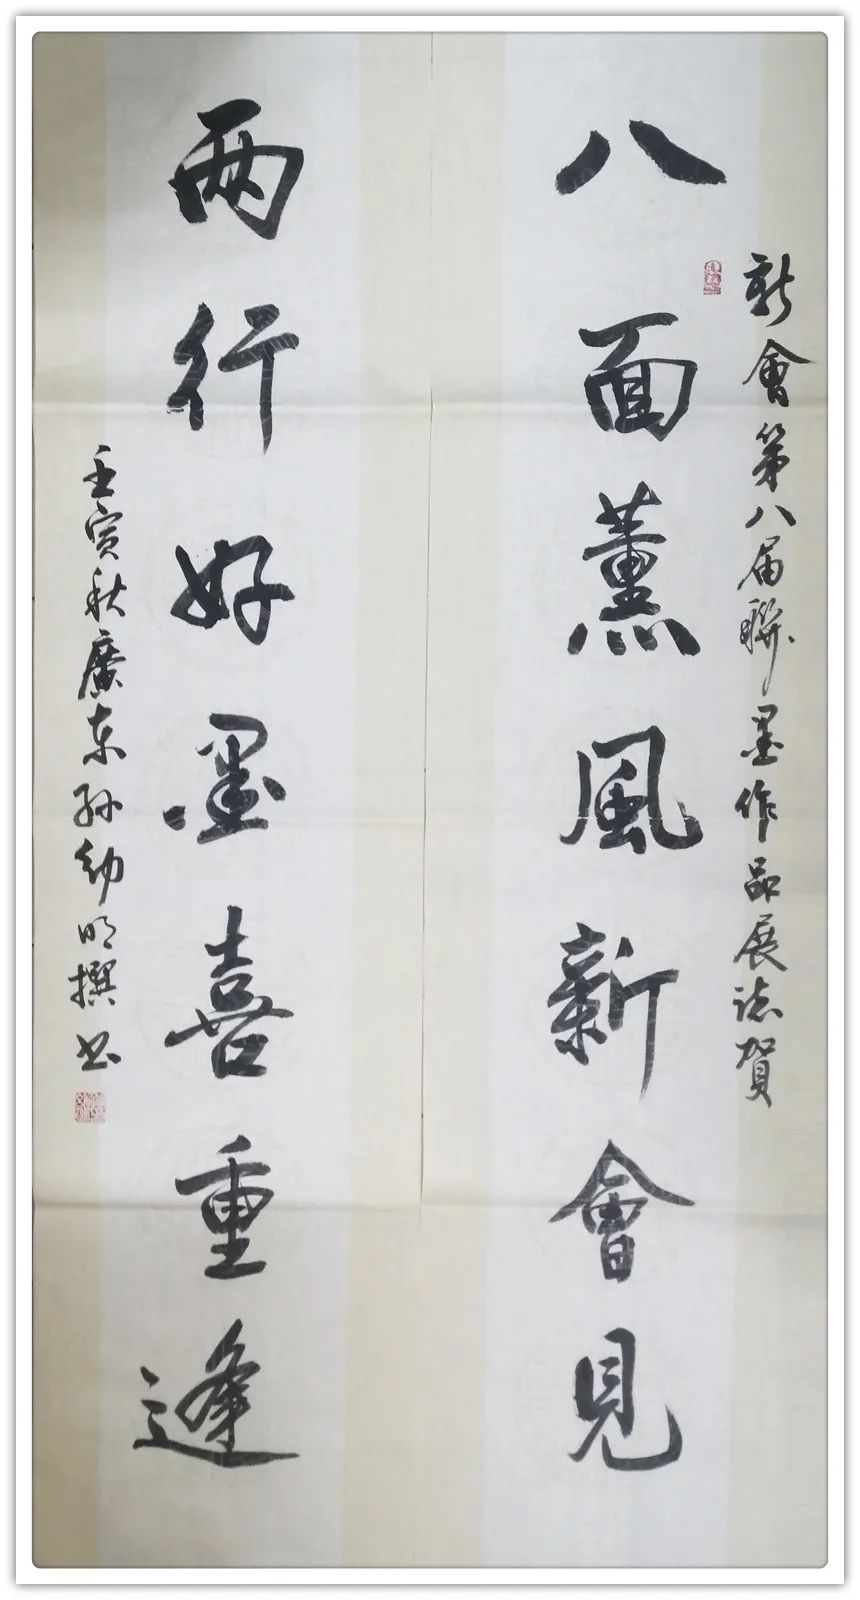 新會第八届聯墨作品展誌賀
八面薰風新會見
两行好墨喜重逢
壬寅秋廣东孙幼明撰书